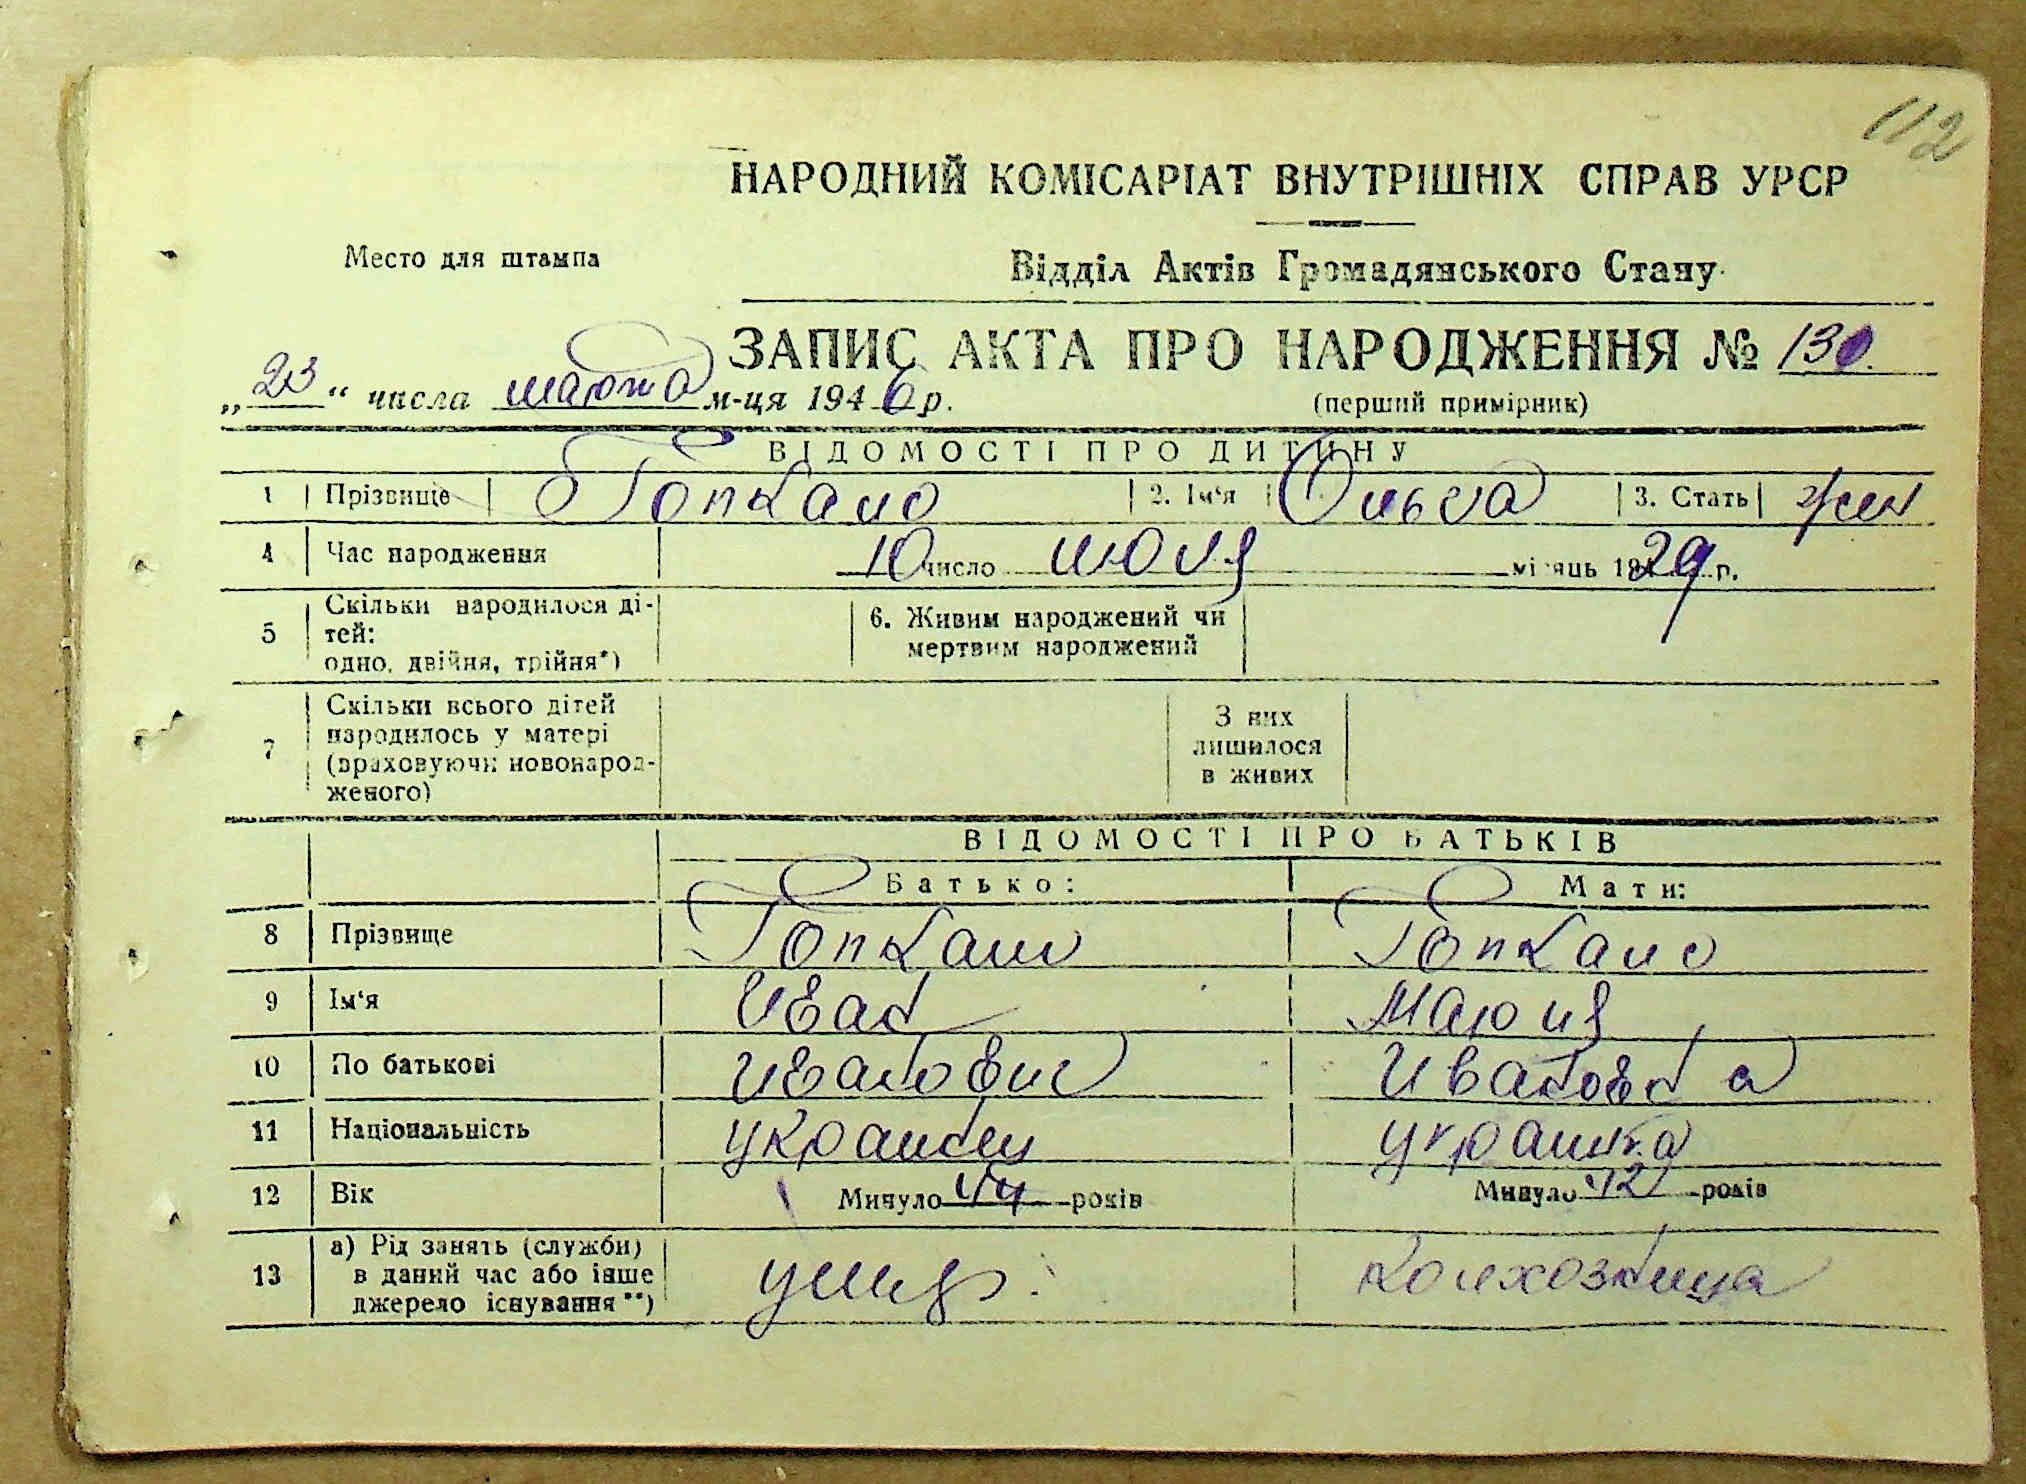 112
НАРОДНИЙ КОМІСАРІАТ ВНУТРІШНІХ СПРАВ УРСР
Место для штампа
Відділ Актів Громадянського Стану
ЗАПИС АКТА ПРО НАРОДЖЕННЯ № 130
„23“ числа марта м-ця 1946 р.
(перший примірник)
ВІДОМОСТІ ПРО ДИТИНУ
1 Прізвище Гопкало 2. Ім'я Ольга 3. Стать жен
4 Час народження 10 число июля місяць 1929 р.
5 Скільки народилося ді-
тей:
одно, двійня, трійня*)
6. Живим народжений чи
мертвим народжений
7 Скільки всього дітей
народилось у матері
(враховуючи новонарод-
женого)
З них
лишилося
в живих
ВІДОМОСТІ ПРО БАТЬКІВ
Батько: Мати:
8 Прізвище Гопкало Гопкало
9 Ім'я Иван Мария
10 По батькові Иванович Ивановна
11 Національність украинец украинка
12 Вік Минуло 44 років Минуло 42 років
13 а) Рід занять (служби)
в даний час або інше
джерело існування**)
колхозница